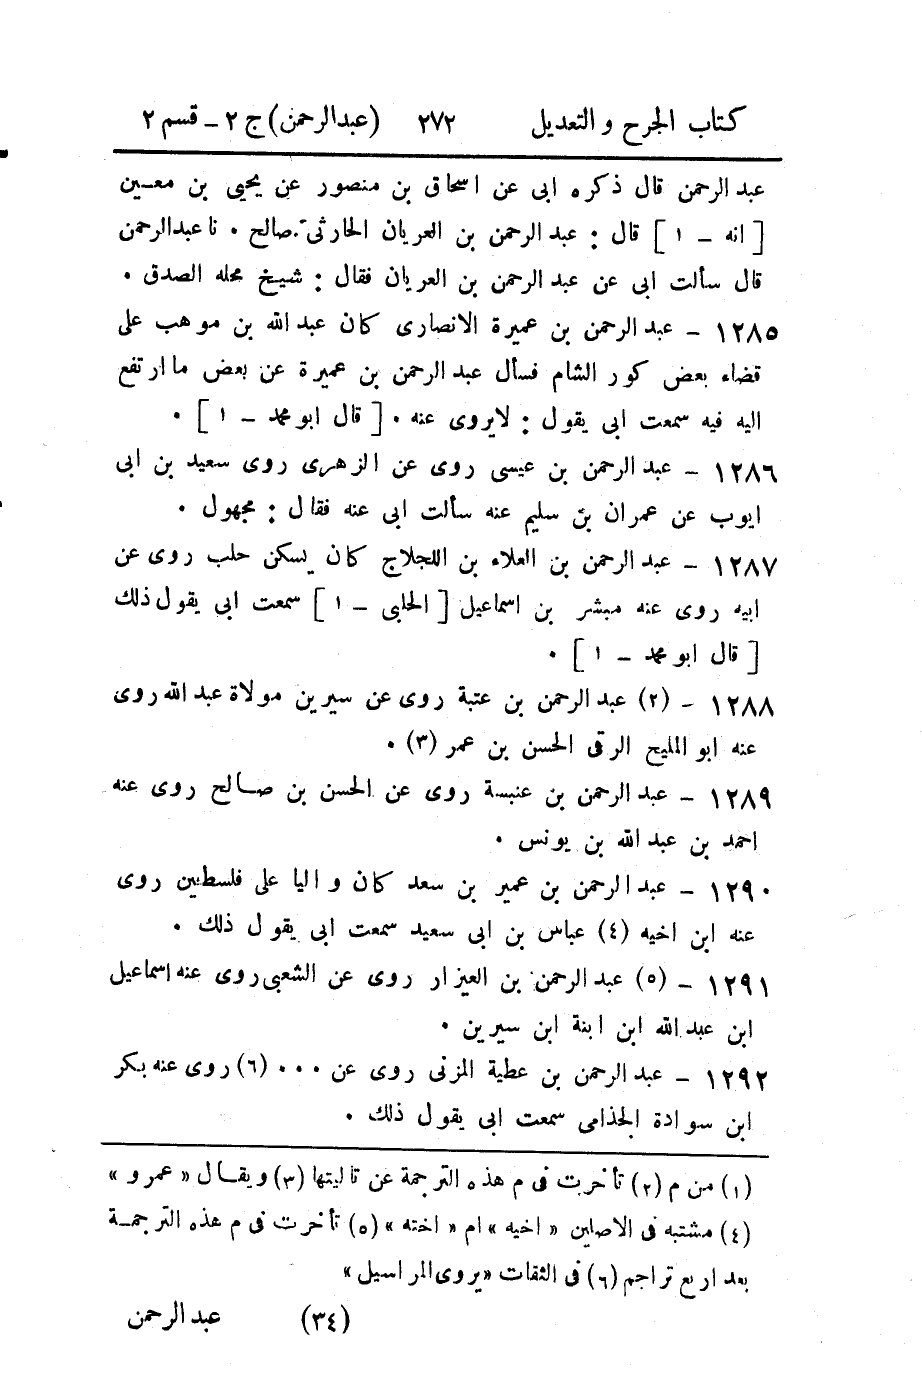 كتاب الجرح و التعديل ٢٧٢ (عبدالرحمن) ج ٢ ـ قسم ٢
عبد الرحمن قال ذكره ابى عن اسحاق بن منصور عن يحيى بن معين
[ انه ـ ١ ] قال : عبد الرحمن بن العريان الحارثى صالح . نا عبدالرحمن
قال سألت ابى عن عبد الرحمن بن العريان فقال : شيخ محله الصدق .
١٢٨٥ ـ عبد الرحمن بن عميرة الانصارى كان عبد الله بن موهب على
قضاء بعض كور الشام فسأل عبد الرحمن بن عميرة عن بعض ما ارتفع
اليه فيه سمعت ابى يقول : لا يروى عنه . [ قال ابو محمد ـ ١ ] .
١٢٨٦ ـ عبد الرحمن بن عيسى روى عن الزهرى روى سعيد بن ابى
ايوب عن عمران بن سليم عنه سألت ابى عنه فقال : مجهول .
١٢٨٧ ـ عبد الرحمن بن العلاء بن اللجلاج كان يسكن حلب روى عن
ابيه روى عنه مبشر بن اسماعيل [ الحلبى ـ ١ ] سمعت ابى يقول ذلك
[ قال ابو محمد ـ ١ ] .
١٢٨٨ ـ (٢) عبد الرحمن بن عتبة روى عن سيرين مولاة عبد الله روى
عنه ابو المليح الرقى الحسن بن عمر (٣) .
١٢٨٩ ـ عبد الرحمن بن عنبسة روى عن الحسن بن صالح روى عنه
احمد بن عبد الله بن يونس .
١٢٩٠ ـ عبد الرحمن بن عمير بن سعد كان واليا على فلسطين روى
عنه ابن اخيه (٤) عباس بن ابى سعيد سمعت ابى يقول ذلك .
١٢٩١ ـ (٥) عبد الرحمن بن العيزار روى عن الشعبى روى عنه اسماعيل
ابن عبد الله ابن ابنة ابن سيرين .
١٢٩٢ ـ عبد الرحمن بن عطية المزنى روى عن ... (٦) روى عنه بكر
ابن سوادة الجذامى سمعت ابى يقول ذلك .
(١) من م (٢) تأخرت فى م هذه الترجمة عن تاليتها (٣) ويقال « عمرو »
(٤) مشتبه فى الاصلين « اخيه » ام « اخته » (٥) تأخرت فى م هذه الترجمة
بعد اربع تراجم (٦) فى الثقات «يروى المراسيل»
(٣٤) عبد الرحمن